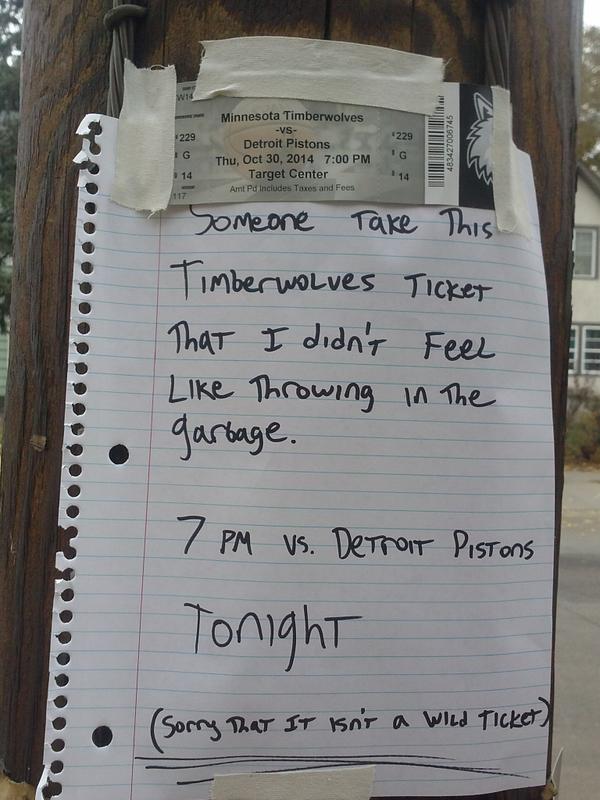 W14
Minnesota Timberwolves
-vs-
Detroit Pistons
Thu, Oct 30, 2014 7:00 PM
Target Center
Amt Pd Includes Taxes and Fees
229
G
14
117
229
G
14
483427006745
Someone Take This
Timberwolves Ticket
That I didn't Feel
Like Throwing in The
garbage.
7 PM vs. Detroit Pistons
Tonight
(Sorry That It Isn't a Wild Ticket)